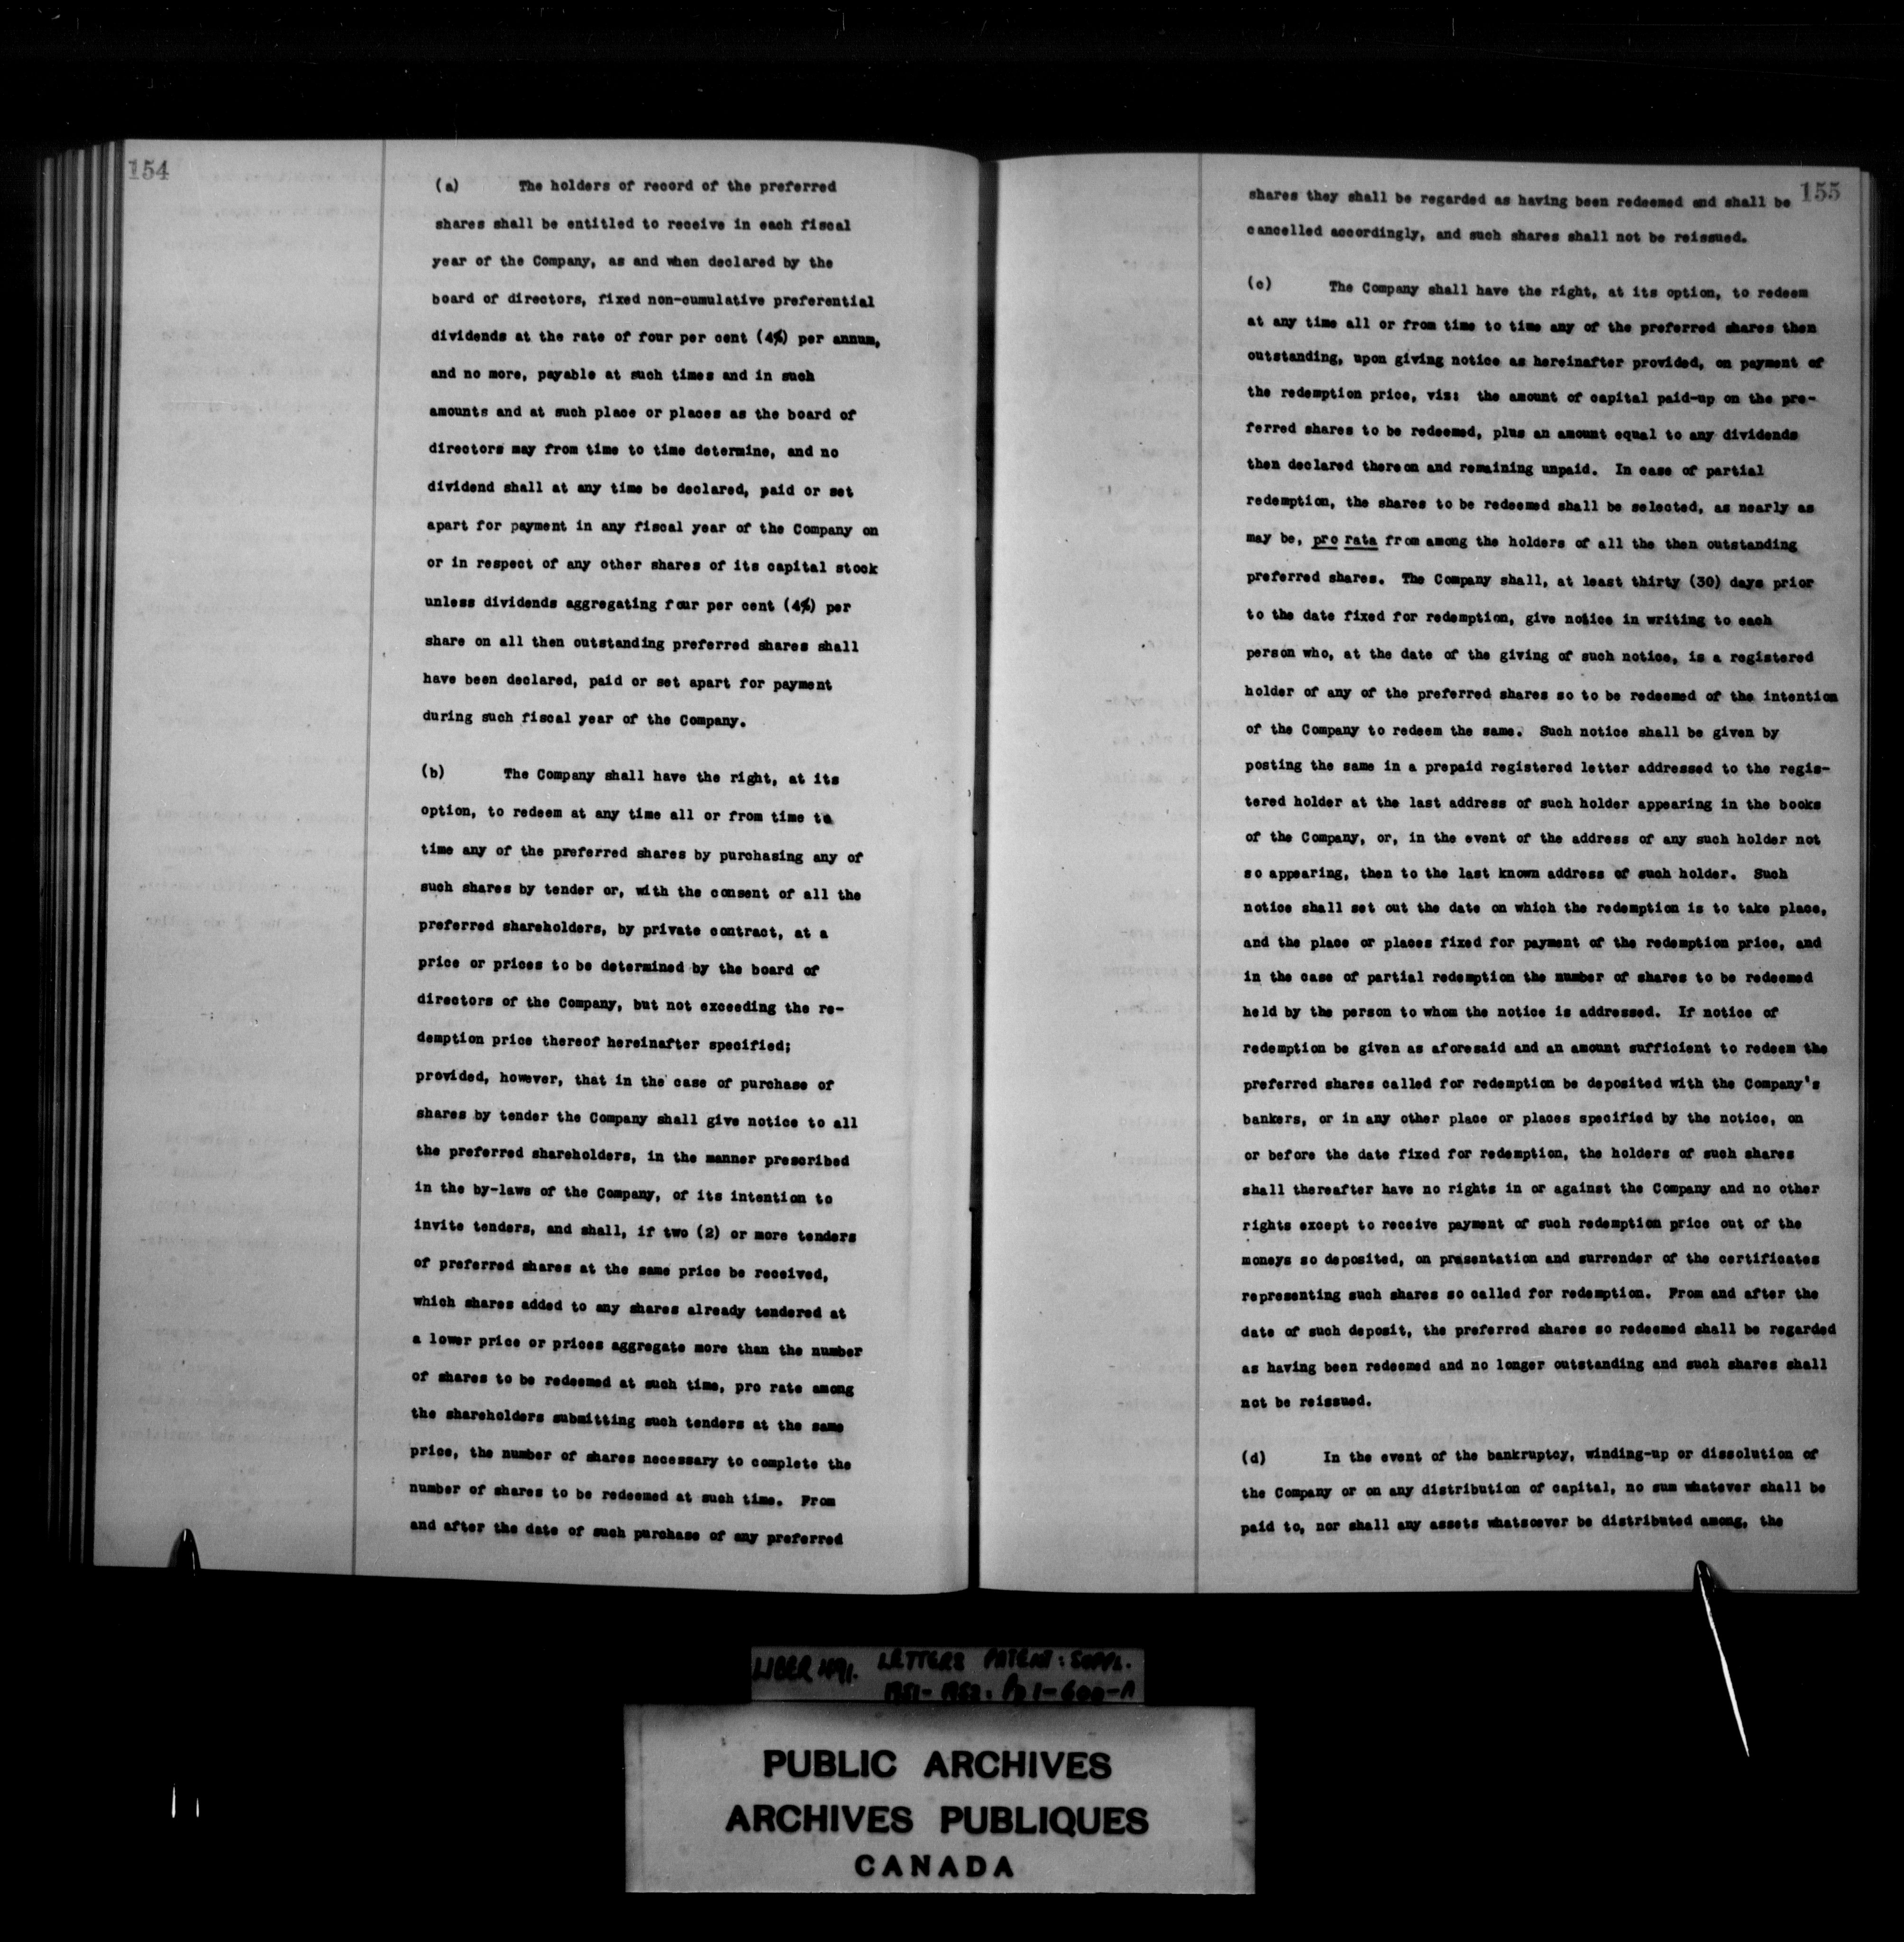 154
(a) The holders of record of the preferred
shares shall be entitled to receive in each fiscal
year of the Company, as and when declared by the
board of directors, fixed non-cumulative preferential
dividends at the rate of four per cent (4%) per annum,
and no more, payable at such times and in such
amounts and at such place or places as the board of
directors may from time to time determine, and no
dividend shall at any time be declared, paid or set
apart for payment in any fiscal year of the Company on
or in respect of any other shares of its capital stock
unless dividends aggregating four per cent (4%) per
share on all then outstanding preferred shares shall
have been declared, paid or set apart for payment
during such fiscal year of the Company.
(b) The Company shall have the right, at its
option, to redeem at any time all or from time to
time any of the preferred shares by purchasing any of
such shares by tender or, with the consent of all the
preferred shareholders, by private contract, at a
price or prices to be determined by the board of
directors of the Company, but not exceeding the re-
demption price thereof hereinafter specified;
provided, however, that in the case of purchase of
shares by tender the Company shall give notice to all
the preferred shareholders, in the manner prescribed
in the by-laws of the Company, of its intention to
invite tenders, and shall, if two (2) or more tenders
of preferred shares at the same price be received,
which shares added to any shares already tendered at
a lower price or prices aggregate more than the number
of shares to be redeemed at such time, pro rate among
the shareholders submitting such tenders at the same
price, the number of shares necessary to complete the
number of shares to be redeemed at such time. From
and after the date of such purchase of any preferred
155
shares they shall be regarded as having been redeemed and shall be
cancelled accordingly, and such shares shall not be reissued.
(c) The Company shall have the right, at its option, to redeem
at any time all or from time to time any of the preferred shares then
outstanding, upon giving notice as hereinafter provided, on payment of
the redemption price, viz: the amount of capital paid-up on the pre-
ferred shares to be redeemed, plus an amount equal to any dividends
then declared thereon and remaining unpaid. In case of partial
redemption, the shares to be redeemed shall be selected, as nearly as
may be, pro rata from among the holders of all the then outstanding
preferred shares. The Company shall, at least thirty (30) days prior
to the date fixed for redemption, give notice in writing to each
person who, at the date of the giving of such notice, is a registered
holder of any of the preferred shares so to be redeemed of the intention
of the Company to redeem the same. Such notice shall be given by
posting the same in a prepaid registered letter addressed to the regis-
tered holder at the last address of such holder appearing in the books
of the Company, or, in the event of the address of any such holder not
so appearing, then to the last known address of such holder. Such
notice shall set out the date on which the redemption is to take place,
and the place or places fixed for payment of the redemption price, and
in the case of partial redemption the number of shares to be redeemed
held by the person to whom the notice is addressed. If notice of
redemption be given as aforesaid and an amount sufficient to redeem the
preferred shares called for redemption be deposited with the Company's
bankers, or in any other place or places specified by the notice, on
or before the date fixed for redemption, the holders of such shares
shall thereafter have no rights in or against the Company and no other
rights except to receive payment of such redemption price out of the
moneys so deposited, on presentation and surrender of the certificates
representing such shares so called for redemption. From and after the
date of such deposit, the preferred shares so redeemed shall be regarded
as having been redeemed and no longer outstanding and such shares shall
not be reissued.
(d) In the event of the bankruptcy, winding-up or dissolution of
the Company or on any distribution of capital, no sum whatever shall be
paid to, nor shall any assets whatsoever be distributed among, the
LIBER 491. LETTERS PATENT: SUPPL.
1951-1952.
PUBLIC ARCHIVES
ARCHIVES PUBLIQUES
CANADA